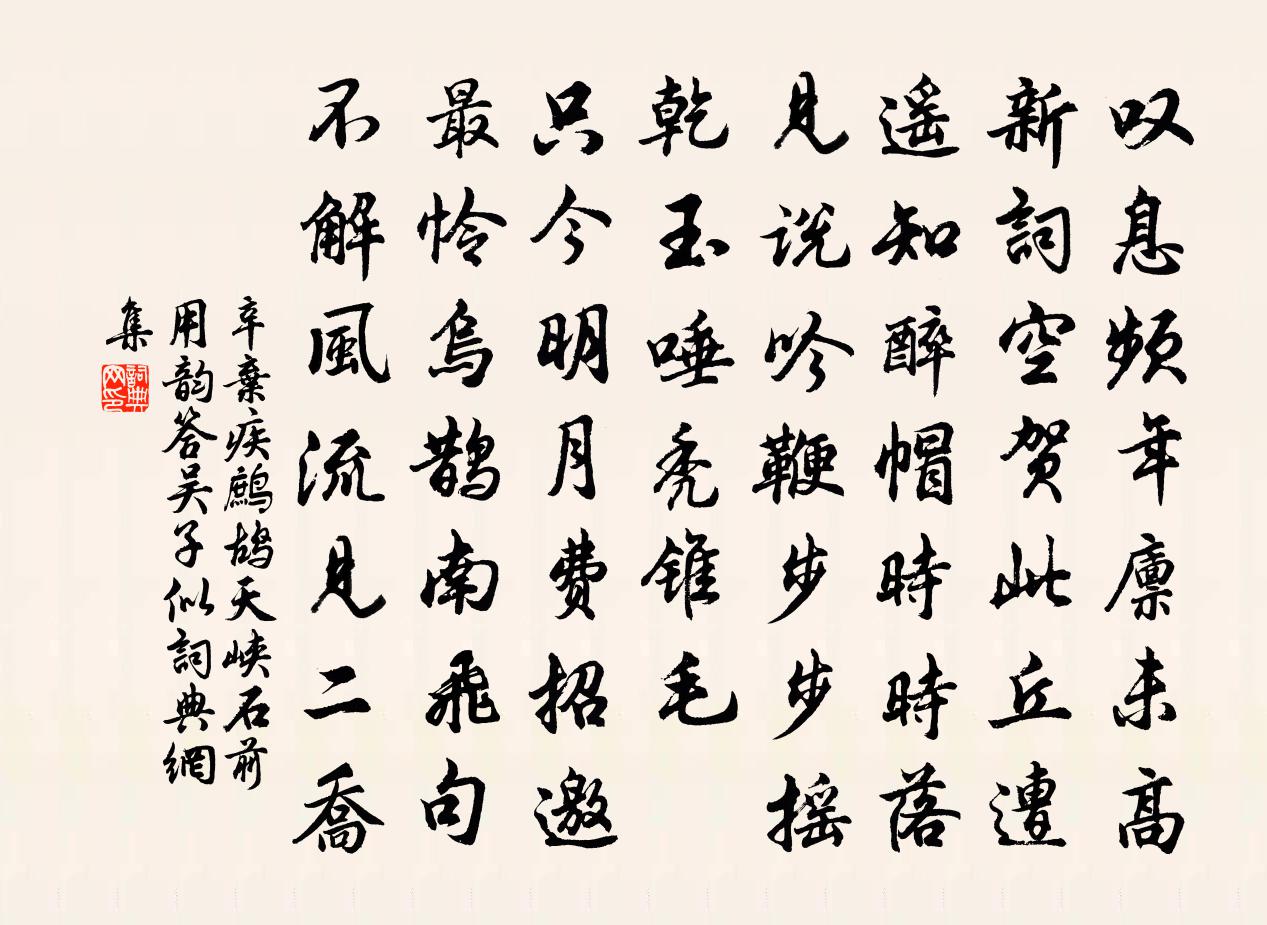 叹息频年廪未高
新詞空贺此丘遭
遥知醉帽時時落
見说吟鞭步步摇
乾玉唾秃锥毛
只今明月费招邀
最怜烏鹊南飛句
不解風流見二喬
辛棄疾鷓鸪天峡石前
用韵答吴子似詞典網
集
詞典网印